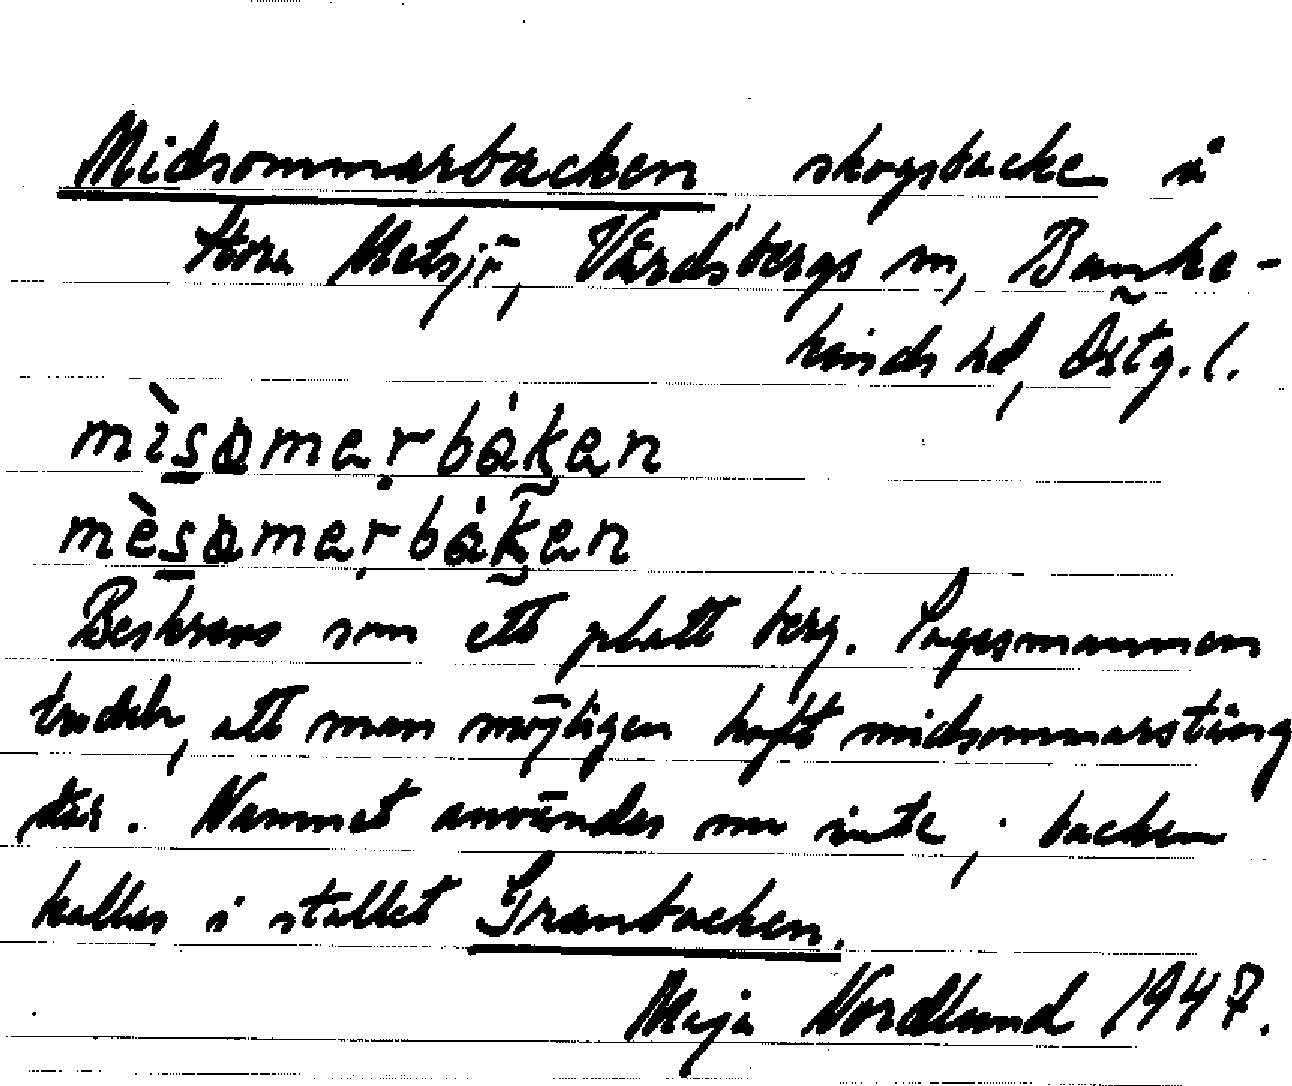 Midsommarbacken skogsbacke å
Stora Metsjö, Vårdsbergs sn, Banke-
kinds hd, Östg. l.
mìsomerbákən
mèsomerbákən
Beskrevs som ett platt berg. Sagesmannen
trodde, att man möjligen haft midsommarstång
där. Namnet användes nu inte; backen
kallas i stället Granbacken.
Maja Nordlund 1947.